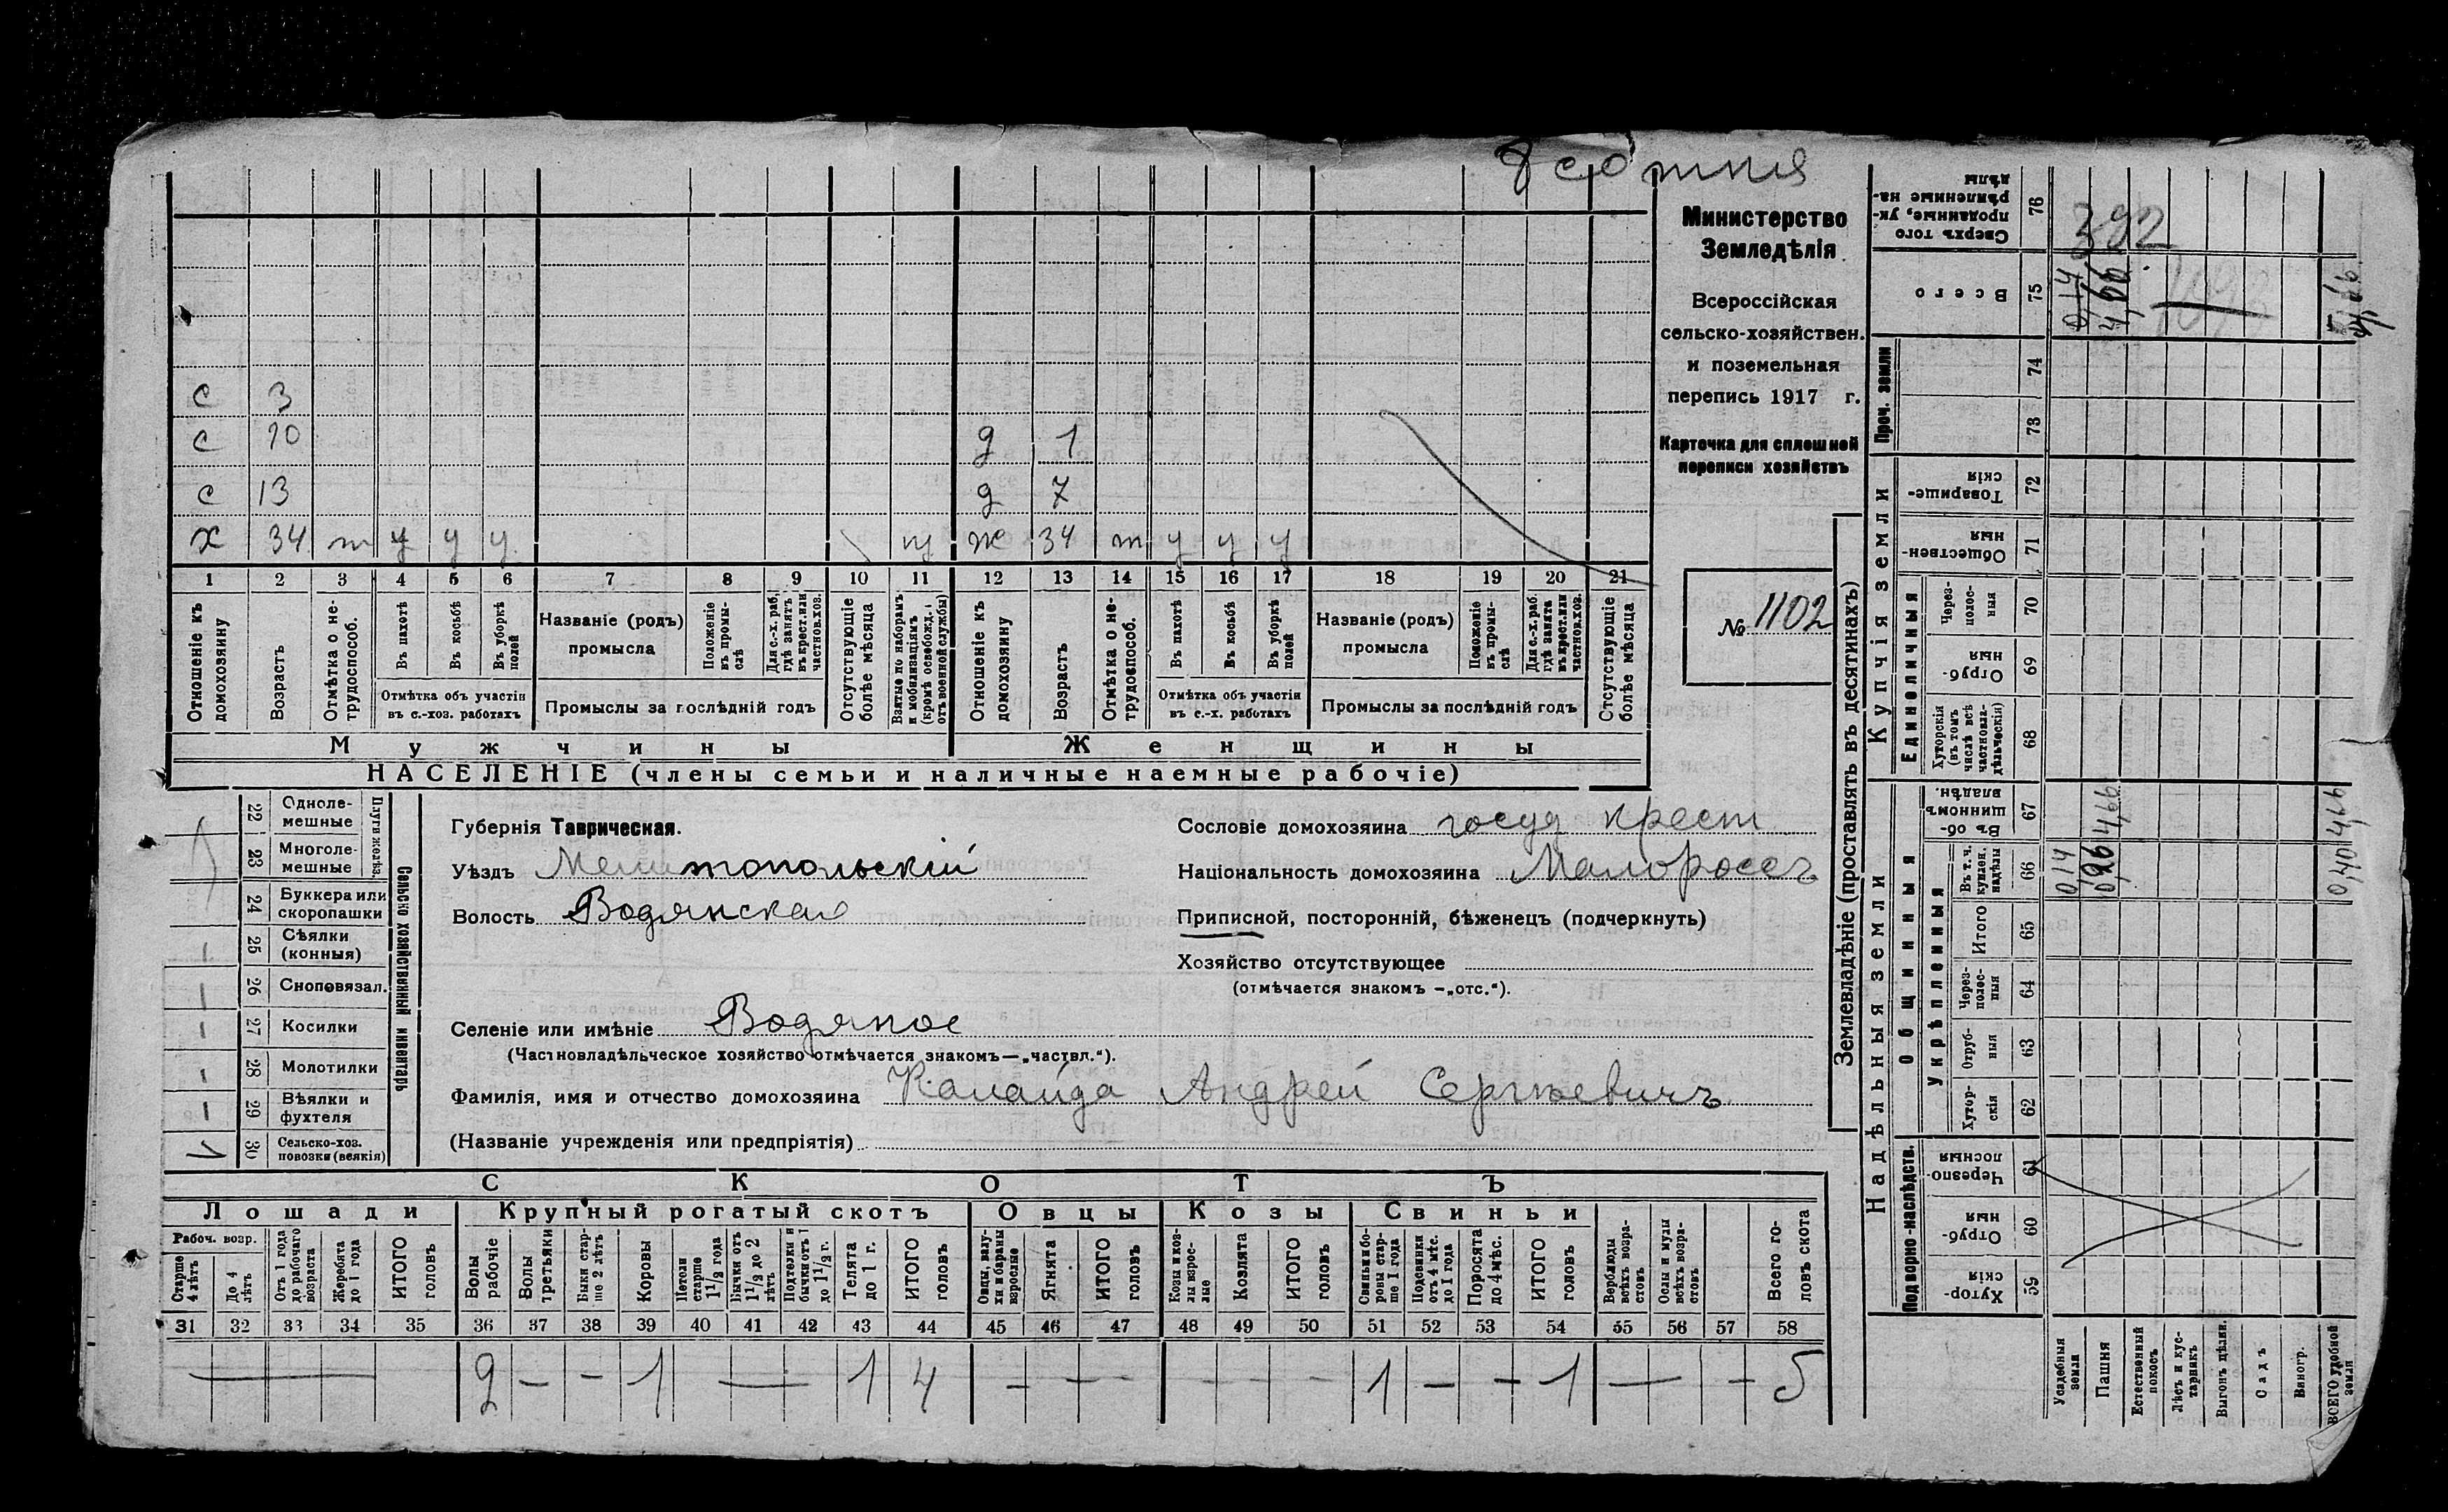 8 сотня
с 3
с 10 д 1
с 13 д 7
х 34 т у у у ж 34 т у у у
1 2 3 4 5 6 7 8 9 10 11 12 13 14 15 16 17 18 19 20 21
Отношеніе къ домохозяину
Возрастъ
Отмѣтка о не-трудоспособ.
Въ пахотѣ
Въ косьбѣ
Въ уборкѣ полей
Отмѣтка объ участіи въ с.-хоз. работахъ
Названіе (родъ) промысла
Положеніе въ промы-слѣ
Для с.-х. раб. гдѣ занятъ въ крест. или частнов. хоз.
Промыслы за послѣдній годъ
Отсутствующіе болѣе мѣсяца
Взятые по наборамъ и мобилизаціямъ (кромѣ освобожд. отъ военной службы)
Отношеніе къ домохозяину
Возрастъ
Отмѣтка о не-трудоспособ.
Въ пахотѣ
Въ косьбѣ
Въ уборкѣ полей
Отмѣтка объ участіи въ с.-х. работахъ
Названіе (родъ) промысла
Положеніе въ промы-слѣ
Для с.-х. раб. гдѣ занята въ крест. или частнов. хоз.
Промыслы за послѣдній годъ
Отсутствующіе болѣе мѣсяца
Мужчины
Женщины
НАСЕЛЕНІЕ (члены семьи и наличные наемные рабочіе)
Министерство
Земледѣлія
Всероссійская
сельско-хозяйствен.
и поземельная
перепись 1917 г.
Карточка для сплошной
переписи хозяйствъ
№ 1102
22 Одноле-мешные
23 Многоле-мешные
Плуги желѣз.
24 Буккера или скоропашки
25 Сѣялки (конныя)
26 Сноповязал.
27 Косилки
28 Молотилки
29 Вѣялки и фухтеля
30 Сельско-хоз. повозки (всякія)
Сельско хозяйственный инвентарь
Губернія Таврическая.
Уѣздъ Мелитопольскій
Волость Водянская
Селеніе или имѣніе Водяное
(Частновладѣльческое хозяйство отмѣчается знакомъ—„частвл.“).
Фамилія, имя и отчество домохозяина Калайда Андрей Сергѣевичъ
(Названіе учрежденія или предпріятія)
Сословіе домохозяина госуд крест
Національность домохозяина Малороссъ
Приписной, посторонній, бѣженецъ (подчеркнуть)
Хозяйство отсутствующее
(отмѣчается знакомъ —„отс.“).
СКОТЪ
Лошади
Крупный рогатый скотъ
Овцы
Козы
Свиньи
Рабоч. возр.
Старше 4 лѣтъ
До 4 лѣтъ
Отъ 1 года до рабочаго возраста
Жеребята до 1 года
ИТОГО головъ
Волы рабочіе
Волы третьяки
Быки стар-ше 2 лѣтъ
Коровы
Нетели старше 1½ года
Бычки отъ 1½ до 2 лѣтъ
Подтелки и бычки отъ 1 до 1½ г.
Телята до 1 г.
ИТОГО головъ
Овцы, валу-хи и бараны взрослые
Ягнята
ИТОГО головъ
Козы и коз-лы взрос-лые
Козлята
ИТОГО головъ
Свиньи и бо-ровы стар-ше 1 года
Подсвинки отъ 4 мѣс. до 1 года
Поросята до 4 мѣс.
ИТОГО головъ
Верблюды всѣхъ возра-стовъ
Ослы и мулы всѣхъ возра-стовъ
Всего го-ловъ скота
31 32 33 34 35 36 37 38 39 40 41 42 43 44 45 46 47 48 49 50 51 52 53 54 55 56 57 58
— 2 — - 1 — 1 4 - - - - - - 1 — - 1 — - 5
Землевладѣніе (проставлять въ десятинахъ)
Надѣльныя земли
Купчія земли
Проч. земли
Подворно-наслѣдств.
Общинныя
Укрѣпленныя
Единоличныя
Сверхъ того проданные, ук-рѣпленные на-дѣлы 76 392
Всего 75 0,14 4,66
74
73
Товарище-скія 72
Обществен-ныя 71
Через-полос-ныя 70
Отруб-ныя 69
Хуторскія (въ томъ числѣ всѣ частновла-дѣльческія) 68
Въ об-щинномъ владѣн. 67 4,66 4,66
Въ т. ч. купчен. надѣлы 66 0,14 0,26 0,40
Итого 65
Через-полос-ныя 64
Отруб-ныя 63
Хутор-скія 62
Черезпо-лосныя 61
Отруб-ныя 60
Хутор-скія 59
Усадебныя земли
Пашня
Естественный покосъ
Лѣсъ и кус-тарникъ
Выгонъ дѣлин.
Садъ
Виногр.
ВСЕГО удобной земли